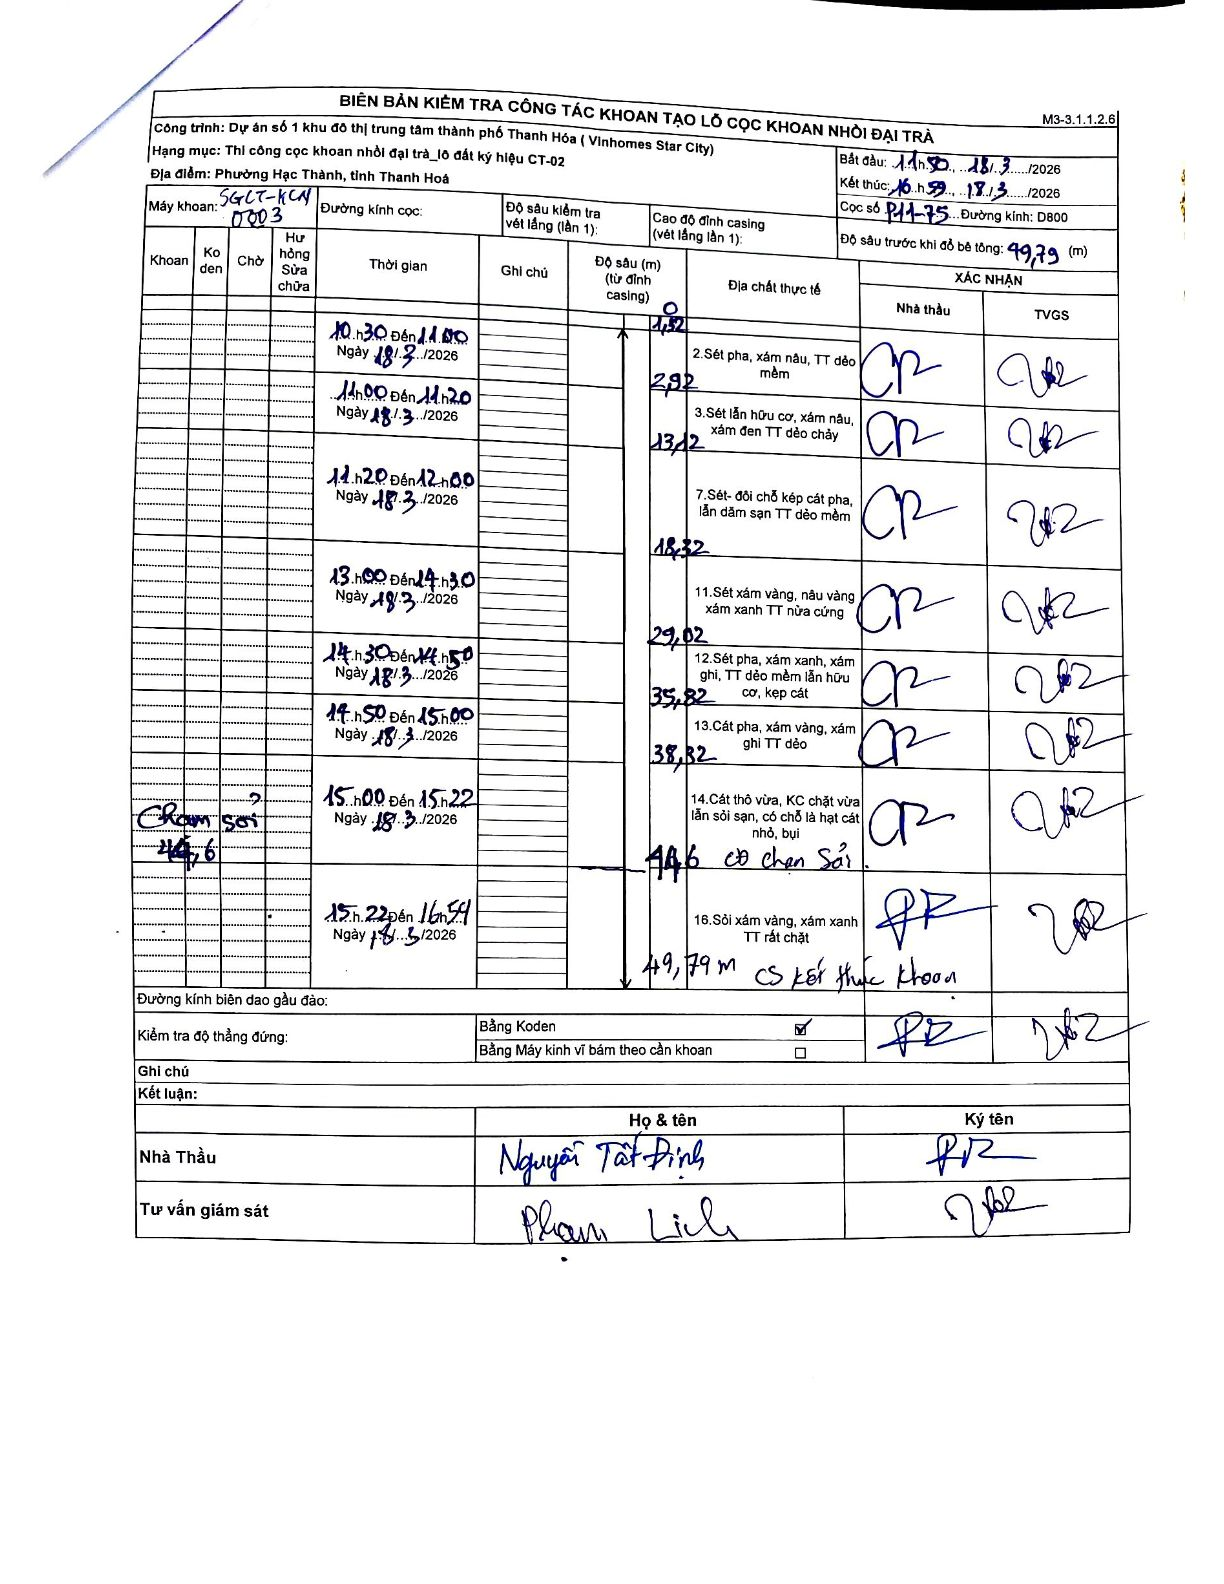 BIÊN BẢN KIỂM TRA CÔNG TÁC KHOAN TẠO LỖ CỌC KHOAN NHỒI ĐẠI TRÀ
M3-3.1.1.2.6
Công trình: Dự án số 1 khu đô thị trung tâm thành phố Thanh Hóa ( Vinhomes Star City)
Hạng mục: Thi công cọc khoan nhồi đại trà_lô đất ký hiệu CT-02
Địa điểm: Phường Hạc Thành, tỉnh Thanh Hoá
Bắt đầu: 11h30, 18/3/2026
Kết thúc: 16h59, 18/3/2026
Cọc số P11-75 Đường kính: D800
Máy khoan: SGCT-KCN
0003
Đường kính cọc:
Độ sâu kiểm tra
vét lắng (lần 1):
Cao độ đỉnh casing
(vét lắng lần 1):
Độ sâu trước khi đổ bê tông: 49,79 (m)
Khoan
Ko
den
Chờ
Hư
hỏng
Sửa
chữa
Thời gian
Ghi chú
Độ sâu (m)
(từ đỉnh
casing)
Địa chất thực tế
XÁC NHẬN
Nhà thầu
TVGS
0
1,52
10h30 Đến 11 00
Ngày 18/3/2026
2.Sét pha, xám nâu, TT dẻo
mềm
2,92
11h00 Đến 11h20
Ngày 18/3/2026
3.Sét lẫn hữu cơ, xám nâu,
xám đen TT dẻo chảy
13,12
11h20 Đến 12h00
Ngày 18/3/2026
7.Sét- đôi chỗ kép cát pha,
lẫn dăm sạn TT dẻo mềm
18,32
13h00 Đến 14h30
Ngày 18/3/2026
11.Sét xám vàng, nâu vàng
xám xanh TT nửa cứng
29,02
14h30 Đến 14h50
Ngày 18/3/2026
12.Sét pha, xám xanh, xám
ghi, TT dẻo mềm lẫn hữu
cơ, kẹp cát
35,82
14h50 Đến 15h00
Ngày 18/3/2026
13.Cát pha, xám vàng, xám
ghi TT dẻo
38,32
15h00 Đến 15h22
Ngày 18/3/2026
14.Cát thô vừa, KC chặt vừa
lẫn sỏi sạn, có chỗ là hạt cát
nhỏ, bụi
Chạm sỏi
44,6
44,6 CĐ chạm Sỏi.
15h22 Đến 16h59
Ngày 18/3/2026
16.Sỏi xám vàng, xám xanh
TT rất chặt
49,79m CS kết thúc khoan
Đường kính biên dao gầu đào:
Kiểm tra độ thẳng đứng:
Bằng Koden
Bằng Máy kinh vĩ bám theo cần khoan
Ghi chú
Kết luận:
Họ & tên
Ký tên
Nhà Thầu
Nguyễn Tất Định
Tư vấn giám sát
Phạm Lich